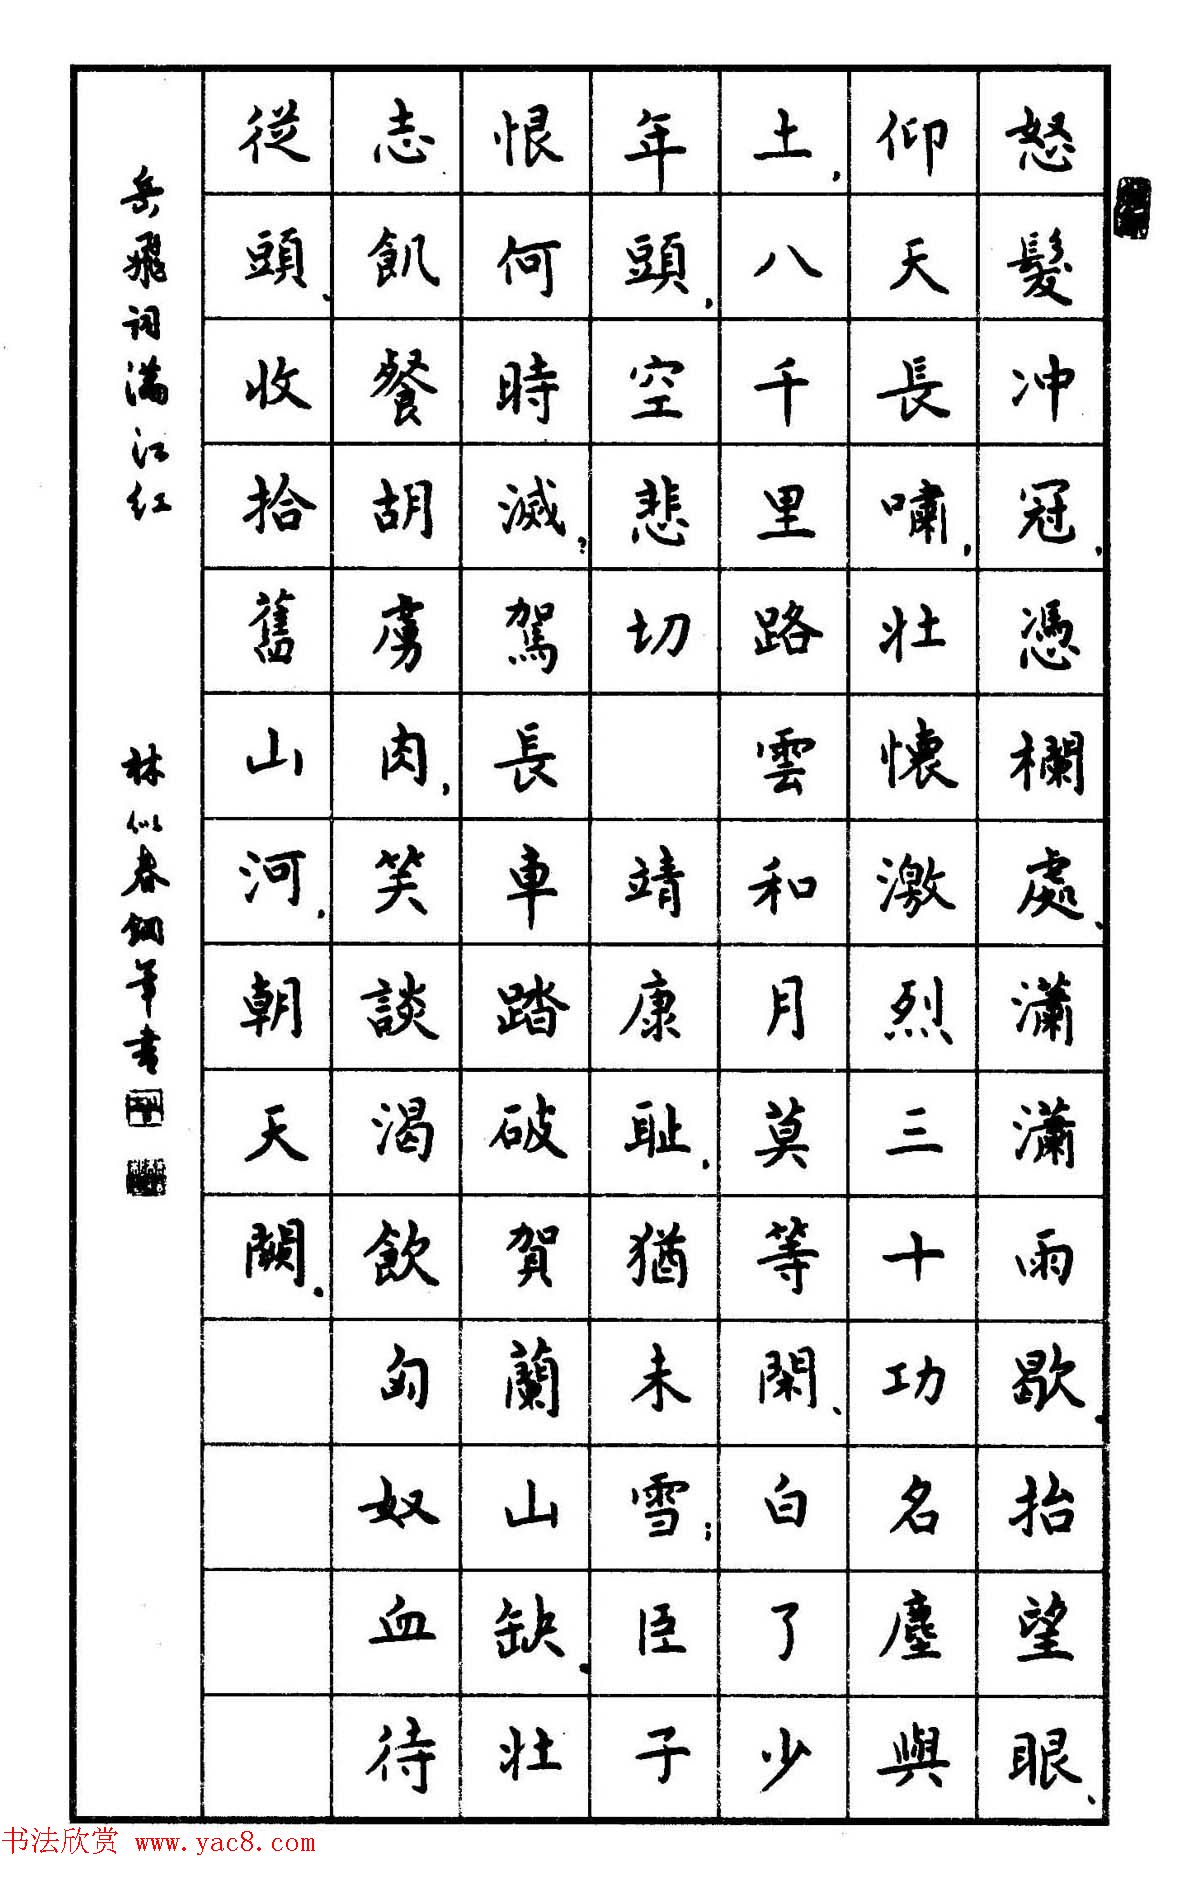 怒髮冲冠,憑欄處、瀟瀟雨歇.抬望眼、
仰天長嘯,壯懷激烈三十功名塵與
土,八千里路雲和月莫等閑、白了少
年頭,空悲切 靖康耻,猶未雪;臣子
恨何時滅?駕長車踏破賀蘭山缺.壯
志飢餐胡虜肉,笑談渴飲匈奴血待
從頭、收拾舊山河,朝天闕.
岳飛词满江红 林似春鋼筆書
书法欣赏 www.yac8.com